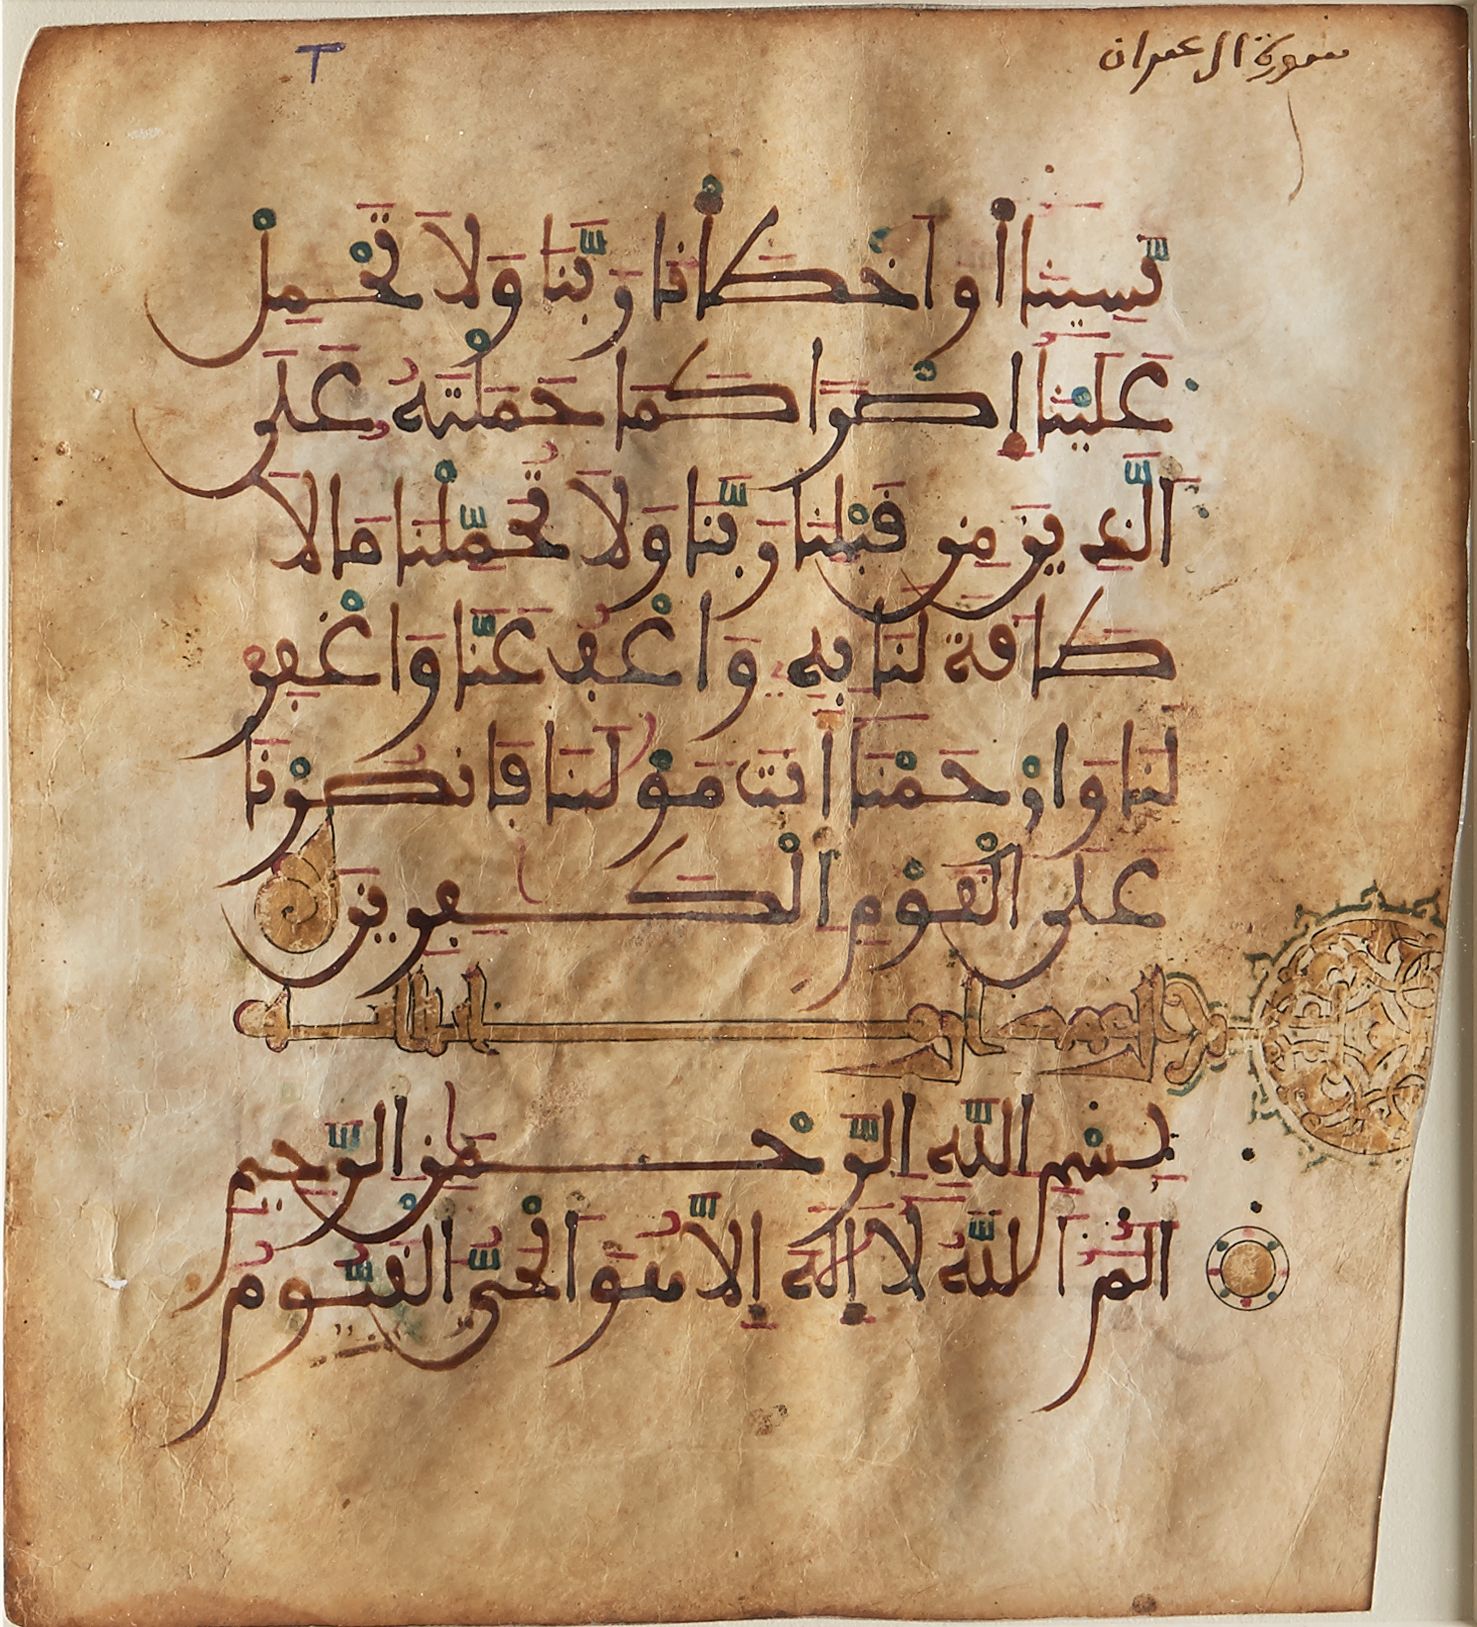 سورة ال عمران
نَّسِينَا أَوَ اخْطَأْنَا رَبَّنَا وَلَا تَحْمِلْ
عَلَيْنَا إِصْرًا كَمَا حَمَلْتَهُ عَلَى
اَلَّذِينَ مِن قَبْلِنَا رَبَّنَا وَلَا تُحَمِّلْنَا مَا لَا
طَاقَةَ لَنَا بِهِ وَاعْفُ عَنَّا وَاغْفِرْ
لَنَا وَارْحَمْنَا أَنتَ مَوْلَٰنَا فَانصُرْنَا
عَلَى اَلْقَوْمِ اِلْكَٰفِرِينَ
بِسْمِ اللَّهِ الرَّحْمَٰنِ الرَّحِيمِ
الٓمِّٓ اَللَّهُ لَا إِلَٰهَ إِلَّا هُوَ اَلْحَيُّ اُلْقَيُّومُ